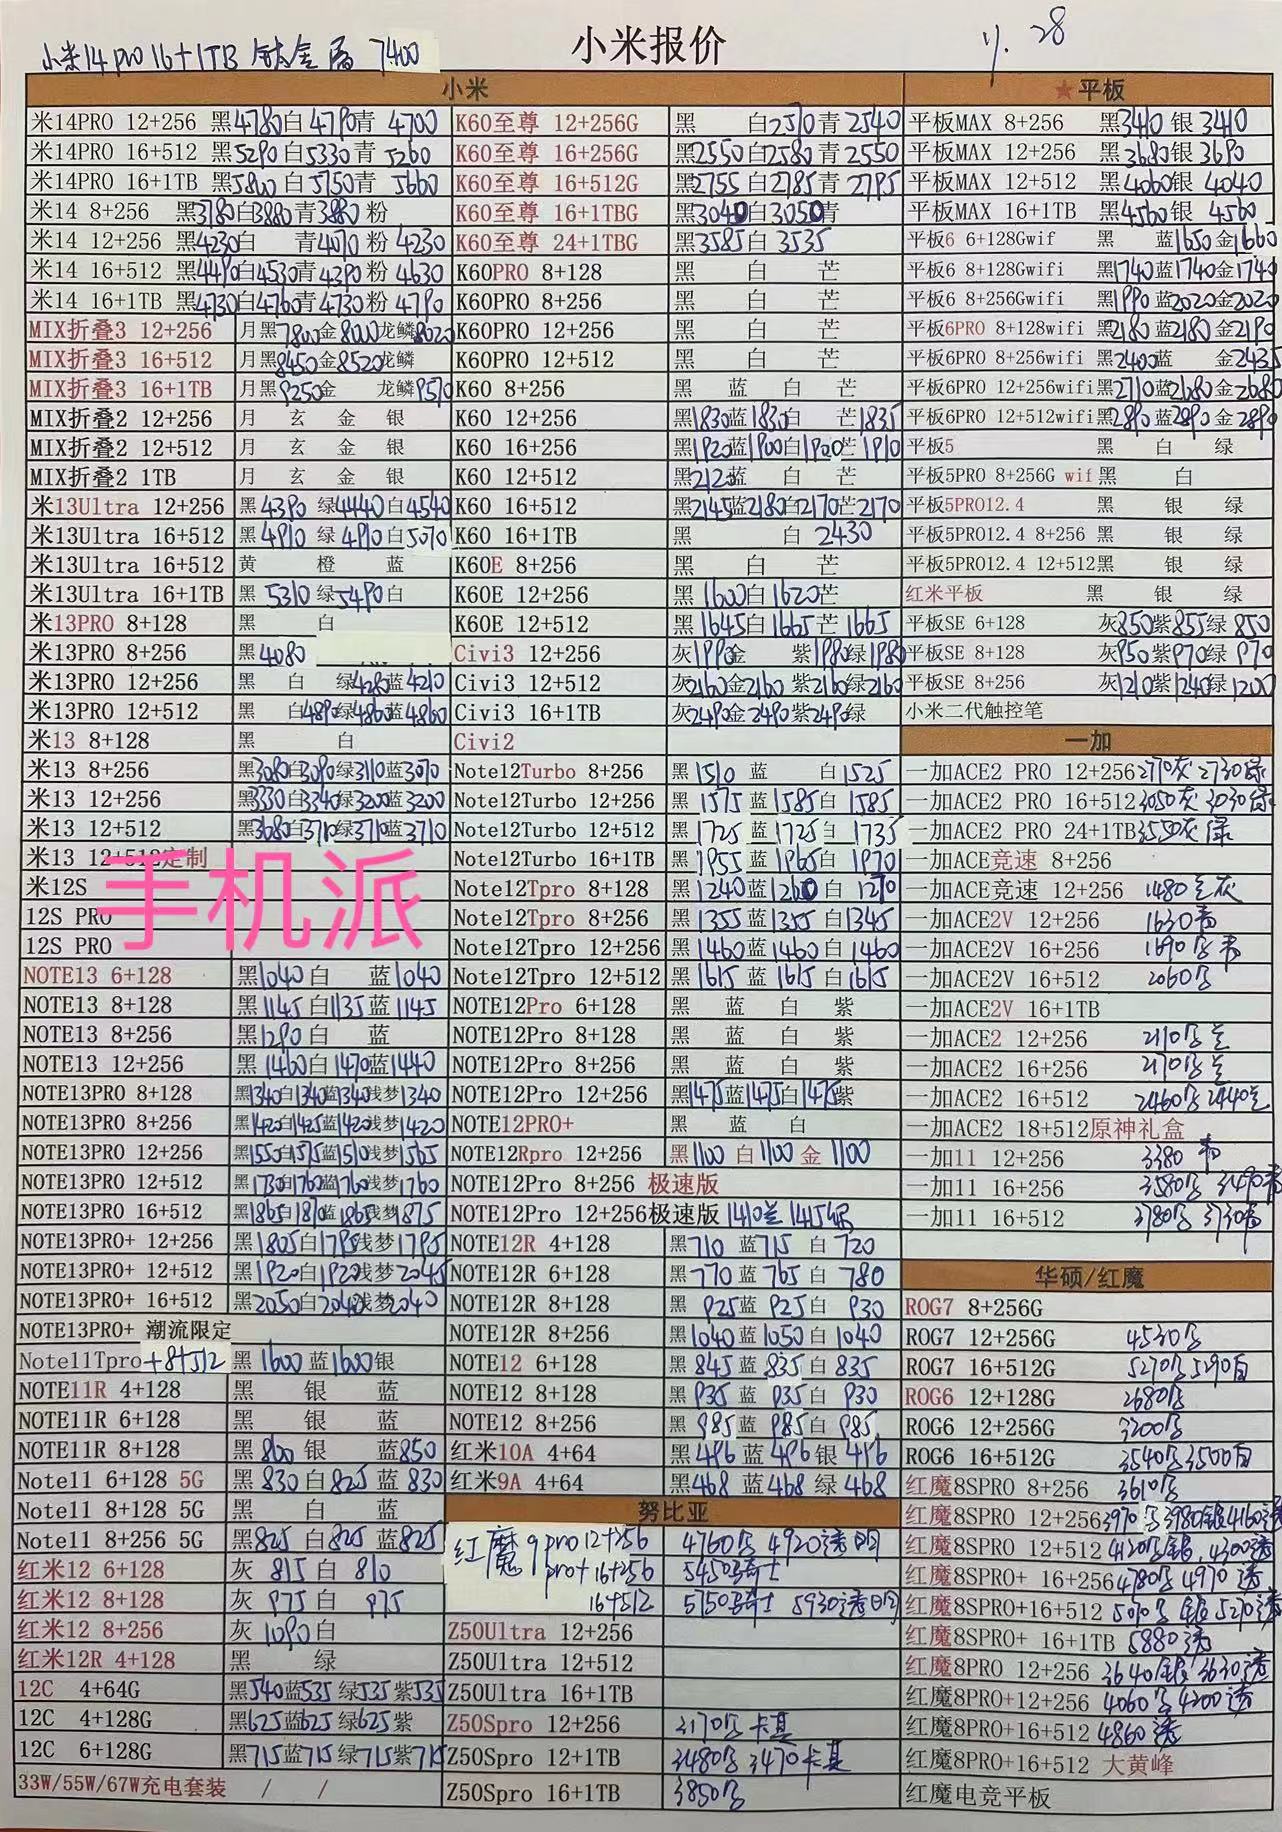 小米14pro 16+1TB 钛金属 7400
小米报价
11.28
小米
米14PRO 12+256 黑4780白4790青 4700
米14PRO 16+512 黑5290白5330青 5260
米14PRO 16+1TB 黑5800白5750青 5660
米14 8+256 黑3780白3880青3880粉
米14 12+256 黑4230白 青4070粉4230
米14 16+512 黑4490白4530青4390粉4630
米14 16+1TB 黑4730白4760青4730粉4790
MIX折叠3 12+256 月黑7800金8000龙鳞8020
MIX折叠3 16+512 月黑8450金8520龙鳞
MIX折叠3 16+1TB 月黑9250金 龙鳞9570
MIX折叠2 12+256 月 玄 金 银
MIX折叠2 12+512 月 玄 金 银
MIX折叠2 1TB 月 玄 金 银
米13Ultra 12+256 黑4390绿4440白4540
米13Ultra 16+512 黑4910绿4910白5070
米13Ultra 16+512 黄 橙 蓝
米13Ultra 16+1TB 黑5310绿5490白
米13PRO 8+128 黑 白
米13PRO 8+256 黑4080
米13PRO 12+256 黑 白 绿4280蓝4210
米13PRO 12+512 黑 白4890绿4860蓝4860
米13 8+128 黑 白
米13 8+256 黑3080白3090绿3110蓝3070
米13 12+256 黑3330白3340绿3200蓝3200
米13 12+512 黑3680白3710绿3710蓝3710
米13 12+512定制
米12S
12S PRO
12S PRO
手机派
NOTE13 6+128 黑1040白 蓝1040
NOTE13 8+128 黑1145白1135蓝1145
NOTE13 8+256 黑1290白 蓝
NOTE13 12+256 黑1460白1470蓝1440
NOTE13PRO 8+128 黑1340白1340蓝1340浅梦1340
NOTE13PRO 8+256 黑1420白1425蓝1420浅梦1420
NOTE13PRO 12+256 黑1550白1575蓝1510浅梦1565
NOTE13PRO 12+512 黑1730白1760蓝1760浅梦1760
NOTE13PRO 16+512 黑1865白1870蓝1865浅梦1875
NOTE13PRO+ 12+256 黑1805白1795浅梦1795
NOTE13PRO+ 12+512 黑1920白1920浅梦2045
NOTE13PRO+ 16+512 黑2050白2040浅梦2040
NOTE13PRO+ 潮流限定
Note11Tpro+8+512 黑1600蓝1600银
NOTE11R 4+128 黑 银 蓝
NOTE11R 6+128 黑 银 蓝
NOTE11R 8+128 黑860银 蓝850
Note11 6+128 5G 黑830白825蓝830
Note11 8+128 5G 黑 白 蓝
Note11 8+256 5G 黑825白825蓝825
红米12 6+128 灰815白810
红米12 8+128 灰975白975
红米12 8+256 灰1090白
红米12R 4+128 黑 绿
12C 4+64G 黑540蓝535绿535紫535
12C 4+128G 黑625蓝625绿625紫
12C 6+128G 黑715蓝715绿715紫715
33W/55W/67W充电套装 / /
K60至尊 12+256G 黑 白2510青2540
K60至尊 16+256G 黑2550白2580青2550
K60至尊 16+512G 黑2755白2785青2795
K60至尊 16+1TBG 黑3040白3050青
K60至尊 24+1TBG 黑3585白3535
K60PRO 8+128 黑 白 芒
K60PRO 8+256 黑 白 芒
K60PRO 12+256 黑 白 芒
K60PRO 12+512 黑 白 芒
K60 8+256 黑 蓝 白 芒
K60 12+256 黑1830蓝1830白 芒1835
K60 16+256 黑1920蓝1900白1900芒1910
K60 12+512 黑2120蓝 白 芒
K60 16+512 黑2145蓝2180白2170芒2170
K60 16+1TB 黑 白2430
K60E 8+256 黑 白 芒
K60E 12+256 黑1600白1620芒
K60E 12+512 黑1645白1665芒1665
Civi3 12+256 灰1990金 紫1980绿1980
Civi3 12+512 灰2160金2160紫2160绿2160
Civi3 16+1TB 灰2490金2490紫2490绿
Civi2
Note12Turbo 8+256 黑1510蓝 白1525
Note12Turbo 12+256 黑1575蓝1585白1585
Note12Turbo 12+512 黑1725蓝1725白1735
Note12Turbo 16+1TB 黑1955蓝1965白1970
Note12Tpro 8+128 黑1240蓝1260白1270
Note12Tpro 8+256 黑1355蓝1355白1345
Note12Tpro 12+256 黑1460蓝1460白1460
Note12Tpro 12+512 黑1615蓝1615白1615
NOTE12Pro 6+128 黑 蓝 白 紫
NOTE12Pro 8+128 黑 蓝 白 紫
NOTE12Pro 8+256 黑 蓝 白 紫
NOTE12Pro 12+256 黑1475蓝1475白1475紫
NOTE12PRO+ 黑 蓝 白
NOTE12Rpro 12+256 黑1100白1100金1100
NOTE12Pro 8+256 极速版
NOTE12Pro 12+256极速版 1410兰 1415绿
NOTE12R 4+128 黑710蓝715白720
NOTE12R 6+128 黑770蓝765白780
NOTE12R 8+128 黑925蓝925白930
NOTE12R 8+256 黑1040蓝1050白1040
NOTE12 6+128 黑845蓝835白835
NOTE12 8+128 黑935蓝935白930
NOTE12 8+256 黑985蓝985白985
红米10A 4+64 黑496蓝496银496
红米9A 4+64 黑468蓝468绿468
努比亚
红魔9pro 12+256 4760黑 4920透明
pro+ 16+256 5450骑士
16+512 5750骑士 5930透明
Z50Ultra 12+256
Z50Ultra 12+512
Z50Ultra 16+1TB
Z50Spro 12+256 3170黑 卡其
Z50Spro 12+1TB 3480黑 3470卡其
Z50Spro 16+1TB 3850黑
★平板
平板MAX 8+256 黑3410银3410
平板MAX 12+256 黑3680银3690
平板MAX 12+512 黑4060银4040
平板MAX 16+1TB 黑4560银4560
平板6 6+128Gwif 黑 蓝1650金1660
平板6 8+128Gwifi 黑1740蓝1740金1740
平板6 8+256Gwifi 黑1990蓝2020金2020
平板6PRO 8+128wifi 黑2180蓝2180金2190
平板6PRO 8+256wifi 黑2400蓝 金2435
平板6PRO 12+256wifi黑2710蓝2680金2680
平板6PRO 12+512wifi黑2890蓝2890金2890
平板5 黑 白 绿
平板5PRO 8+256G wif 黑 白
平板5PRO12.4 黑 银 绿
平板5PRO12.4 8+256 黑 银 绿
平板5PRO12.4 12+512黑 银 绿
红米平板 黑 银 绿
平板SE 6+128 灰850紫855绿850
平板SE 8+128 灰950紫970绿970
平板SE 8+256 灰1210紫1240绿1200
小米二代触控笔
一加
一加ACE2 PRO 12+256 2770灰 2730绿
一加ACE2 PRO 16+512 3050灰 3030绿
一加ACE2 PRO 24+1TB 3550灰绿
一加ACE竞速 8+256
一加ACE竞速 12+256 1480兰灰
一加ACE2V 12+256 1630青
一加ACE2V 16+256 1690黑青
一加ACE2V 16+512 2060黑
一加ACE2V 16+1TB
一加ACE2 12+256 2110黑兰
一加ACE2 16+256 2170黑兰
一加ACE2 16+512 2460黑 2440兰
一加ACE2 18+512原神礼盒
一加11 12+256 3380 青
一加11 16+256 3580黑 3490青
一加11 16+512 3780黑 3730青
华硕/红魔
ROG7 8+256G
ROG7 12+256G 4530黑
ROG7 16+512G 5270黑 5290白
ROG6 12+128G 2680黑
ROG6 12+256G 3200黑
ROG6 16+512G 3540黑3500白
红魔8SPRO 8+256 3610黑
红魔8SPRO 12+256 3970黑3980银4160透
红魔8SPRO 12+512 4120黑银,4300透
红魔8SPRO+ 16+256 4780黑 4970透
红魔8SPRO+16+512 5090黑 银 5270透
红魔8SPRO+ 16+1TB 5880透
红魔8PRO 12+256 3640银 3630透
红魔8PRO+12+256 4060黑 4200透
红魔8PRO+16+512 4860透
红魔8PRO+16+512 大黄峰
红魔电竞平板